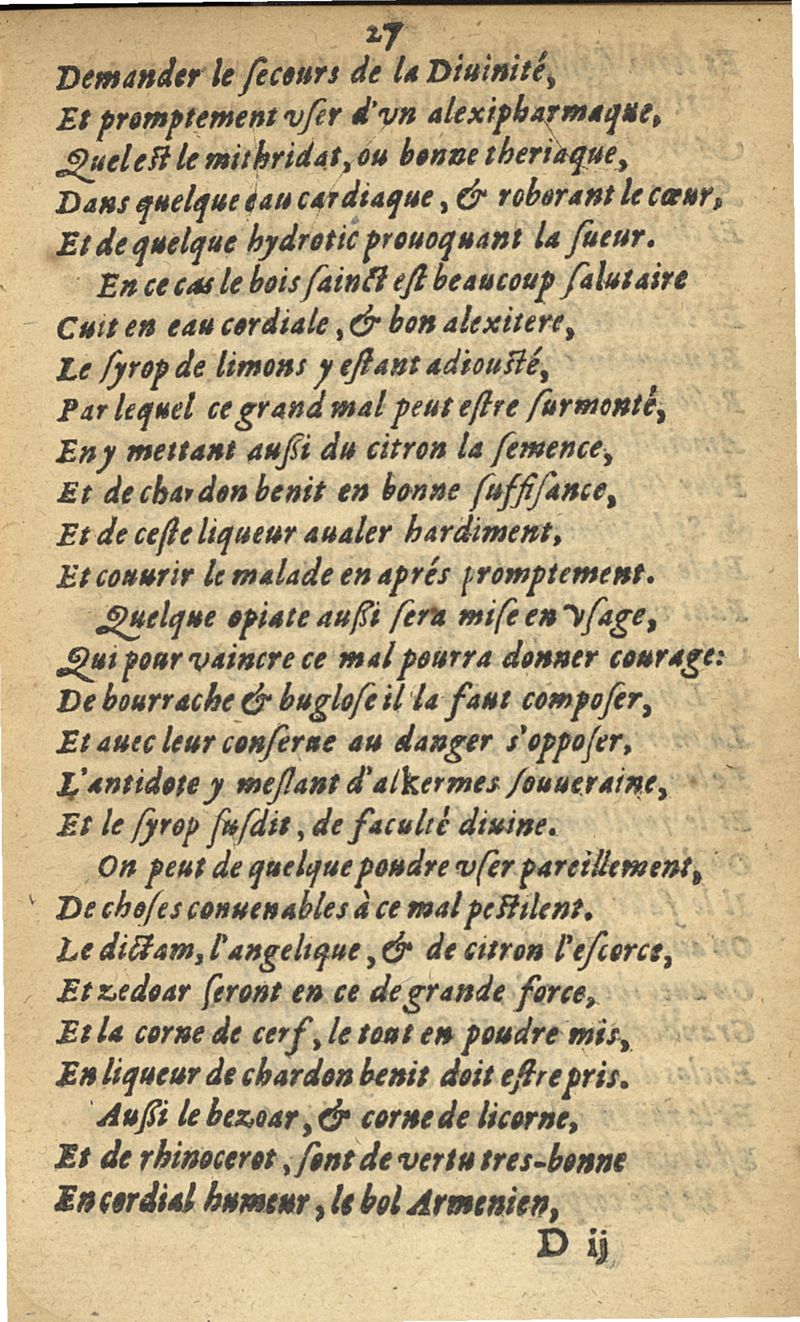 27
Demander le ſecours de la Diuinité,
Et promptement vſer d'vn alexipharmaque,
Quel eſt le mithridat, ou bonne theriaque,
Dans quelque eau cardiaque, & roborant le cœur,
Et de quelque hydrotic prouoquant la ſueur.
En ce cas le bois ſainct eſt beaucoup ſalutaire
Cuit en eau cordiale, & bon alexitere,
Le ſyrop de limons y eſtant adiouſté,
Par lequel ce grand mal peut eſtre ſurmonté,
En y mettant auſſi du citron la ſemence,
Et de chardon benit en bonne ſuffiſance,
Et de ceſte liqueur aualer hardiment,
Et couurir le malade en aprés promptement.
Quelque opiate auſſi ſera miſe en vſage,
Qui pour vaincre ce mal pourra donner courage:
De bourrache & bugloſe il la faut compoſer,
Et auec leur conſerue au danger s'oppoſer,
L'antidote y meſlant d'alkermes ſouueraine,
Et le ſyrop ſuſdit, de faculté diuine.
On peut de quelque poudre vſer pareillement,
De choſes conuenables à ce mal peſtilent.
Le dictam, l'angelique, & de citron l'eſcorce,
Et zedoar ſeront en ce de grande force,
Et la corne de cerf, le tout en poudre mis,
En liqueur de chardon benit doit eſtre pris.
Auſſi le bezoar, & corne de licorne,
Et de rhinocerot, ſont de vertu tres-bonne
En cordial humeur, le bol Armenien,
D ij